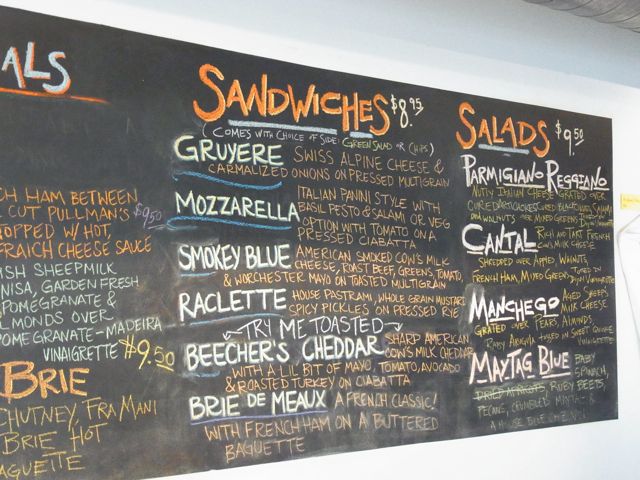 ALS
CH HAM BETWEEN
CUT PULLMAN'S $9.50
OPPED W/ HOT,
FRAICH CHEESE SAUCE
ISH SHEEPMILK
NISA, GARDEN FRESH
POMEGRANATE &
LMONDS OVER
POMEGRANATE-MADEIRA
VINAIGRETTE $9.50
BRIE
CHUTNEY, FRA MANI
BRIE HOT
AGUETTE
SANDWICHES $8.95
(COMES WITH CHOICE OF SIDE: GREEN SALAD OR CHIPS)
GRUYERE SWISS ALPINE CHEESE &
CARMALIZED ONIONS ON PRESSED MULTIGRAIN
MOZZARELLA ITALIAN PANINI STYLE WITH
BASIL PESTO & SALAMI OR VEG
OPTION WITH TOMATO ON A
PRESSED CIABATTA
SMOKEY BLUE AMERICAN SMOKED COW'S MILK
CHEESE, ROAST BEEF, GREENS, TOMATO,
& WORCHESTER MAYO ON TOASTED MULTIGRAIN
RACLETTE HOUSE PASTRAMI, WHOLE GRAIN MUSTARD
SPICY PICKLES ON PRESSED RYE
TRY ME TOASTED
BEECHER'S CHEDDAR SHARP AMERICAN
COW'S MILK CHEDDAR
WITH A LIL BIT OF MAYO, TOMATO, AVOCADO
& ROASTED TURKEY ON CIABATTA
BRIE DE MEAUX A FRENCH CLASSIC!
WITH FRENCH HAM ON A BUTTERED
BAGUETTE
SALADS $9.50
PARMIGIANO REGGIANO
NUTTY ITALIAN CHEESE GRATED OVER
WALNUTS OVER MIXED GREENS
CANTAL RICH AND TART FRENCH
COW'S MILK CHEESE
SHREDDED OVER APPLES, WALNUTS,
FRENCH HAM, MIXED GREENS TOSSED IN
DIJON VINAIGRETTE
MANCHEGO AGED SHEEPS
MILK CHEESE
GRATED OVER PEARS, ALMONDS,
BABY ARUGULA TOSSED IN SWEET QUINCE
VINAIGRETTE
MAYTAG BLUE BABY
SPINACH,
DRIED APRICOTS, RUBY BEETS,
PECANS, CRUMBLED MAYTAG &
A HOUSE